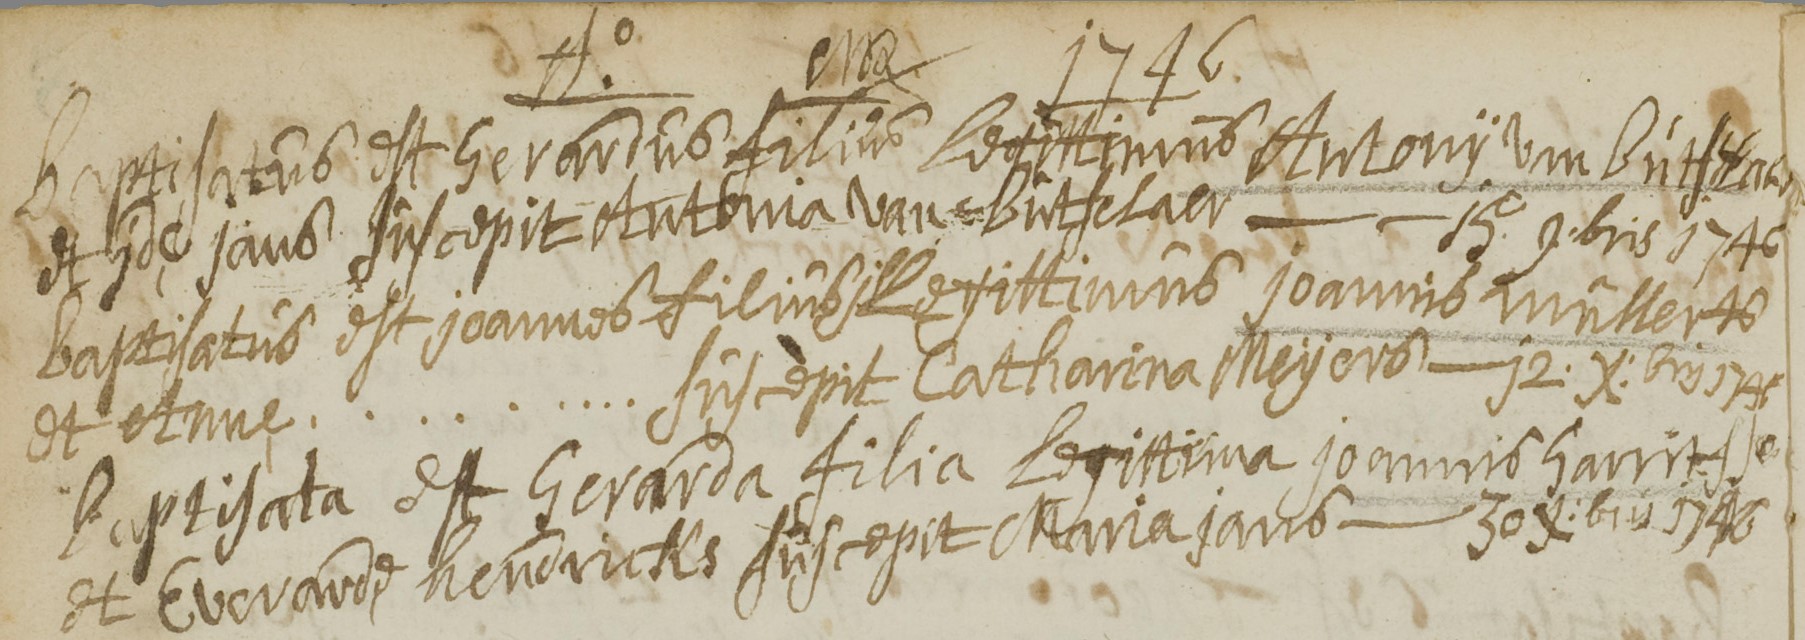 Ao. 1746.
baptisatus est Gerardus filius Legittimus Antonij van bútselaer
et Idę jans suscepit Antonia van bútselaer — 15. 9.bris 1746
baptisatus est joannes filius illegittimus joannis mullerts
et Annę . . . . . . . . . . suscepit Catharina Meijers — 12. X.bris 1746
baptisata est Gerarda filia Legittima joannis Garritsse
et Everardę hendricks suscepit Maria jans — 30 X.bris 1746